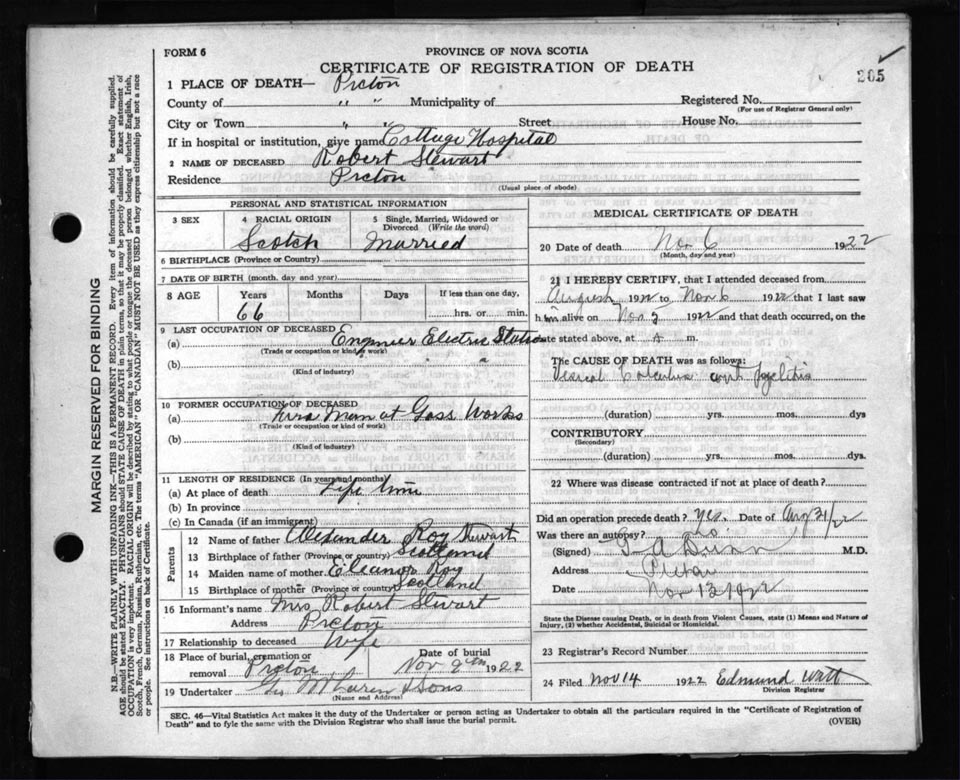 FORM 6
PROVINCE OF NOVA SCOTIA
CERTIFICATE OF REGISTRATION OF DEATH
205
1 PLACE OF DEATH— Pictou
County of " " Municipality of Registered No.
(For use of Registrar General only)
City or Town " " Street House No.
If in hospital or institution, give name Cottage Hospital
2 NAME OF DECEASED Robert Stewart
Residence Pictou
(Usual place of abode)
PERSONAL AND STATISTICAL INFORMATION
3 SEX 4 RACIAL ORIGIN 5 Single, Married, Widowed or Divorced (Write the word)
Scotch Married
6 BIRTHPLACE (Province or Country)
7 DATE OF BIRTH (month, day and year)
8 AGE Years Months Days If less than one day,
66 hrs. or min.
9 LAST OCCUPATION OF DECEASED
(a) Engineer Electric Station
(Trade or occupation or kind of work)
(b) " "
(Kind of industry)
10 FORMER OCCUPATION OF DECEASED
(a) Fire Man at Gass Works
(Trade or occupation or kind of work)
(b)
(Kind of industry)
11 LENGTH OF RESIDENCE (In years and months)
(a) At place of death Life time
(b) In province
(c) In Canada (if an immigrant)
Parents
12 Name of father Alexander Roy Stewart
13 Birthplace of father (Province or country) Scotland
14 Maiden name of mother Eleanor Roy
15 Birthplace of mother (Province or country) Scotland
16 Informant's name Mrs Robert Stewart
Address Pictou
17 Relationship to deceased Wife
18 Place of burial, cremation or removal Pictou Date of burial Nov 9th 1922
19 Undertaker McLaren & Sons
(Name and Address)
MEDICAL CERTIFICATE OF DEATH
20 Date of death Nov 6 1922
(Month, day and year)
21 I HEREBY CERTIFY, that I attended deceased from
August 1922 to Nov 6 1922 that I last saw
him alive on Nov 2 1922 and that death occurred, on the
date stated above, at m.
The CAUSE OF DEATH was as follows:
Vesical Calculus with Pyelitis
(duration) yrs. mos. dys
CONTRIBUTORY
(Secondary)
(duration) yrs. mos. dys.
22 Where was disease contracted if not at place of death?
Did an operation precede death? Yes. Date of Aug 31/22
Was there an autopsy? No
(Signed) M.D.
Address Pictou
Date Nov 13 1922
State the Disease causing Death, or in death from Violent Causes, state (1) Means and Nature of
Injury, (2) whether Accidental, Suicidal or Homicidal.
23 Registrar's Record Number
24 Filed Nov 14 1922 Edmund Watt
Division Registrar
SEC. 46—Vital Statistics Act makes it the duty of the Undertaker or person acting as Undertaker to obtain all the particulars required in the "Certificate of Registration of
Death" and to fyle the same with the Division Registrar who shall issue the burial permit. (OVER)
MARGIN RESERVED FOR BINDING
N.B.—WRITE PLAINLY WITH UNFADING INK—THIS IS A PERMANENT RECORD. Every item of information should be carefully supplied.
AGE should be stated EXACTLY. PHYSICIANS should STATE CAUSE OF DEATH in plain terms, so that it may be properly classified. Exact statement of
OCCUPATION is very important. RACIAL ORIGIN will be described by stating to what people or tongue the deceased person belonged whether English, Irish,
Scotch, French, German, Russian, Ruthenian, etc. The terms "AMERICAN" OR "CANADIAN" MUST NOT BE USED as they express citizenship but not a race
or people. See instructions on back of Certificate.